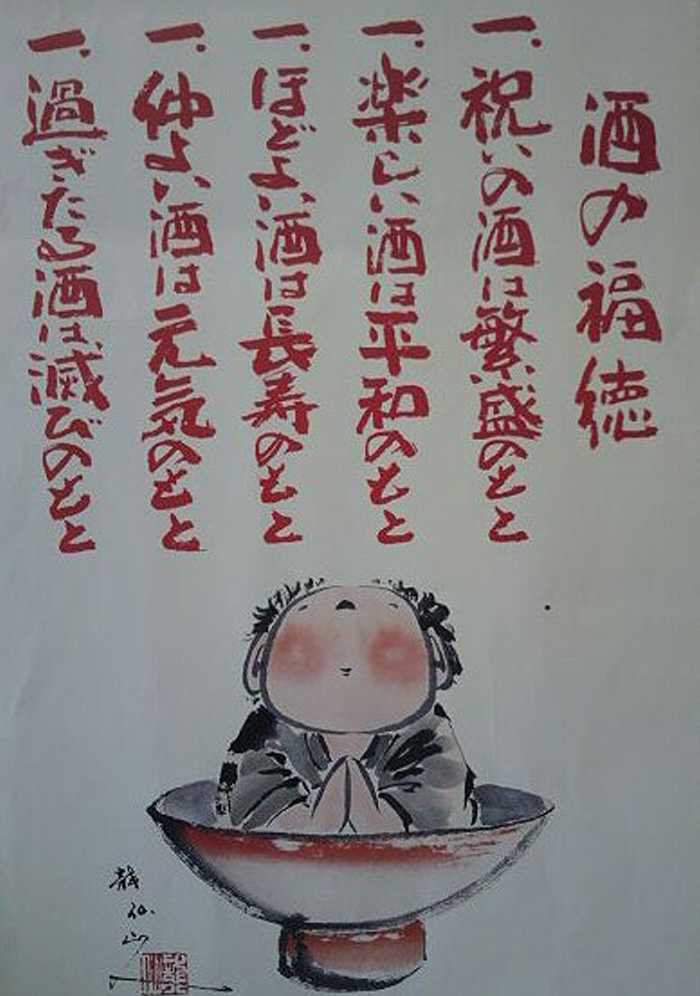 酒の福徳
一、祝いの酒は繁盛のもと
一、楽しい酒は平和のもと
一、ほどよい酒は長寿のもと
一、仲よい酒は元気のもと
一、過ぎたる酒は、滅びのもと